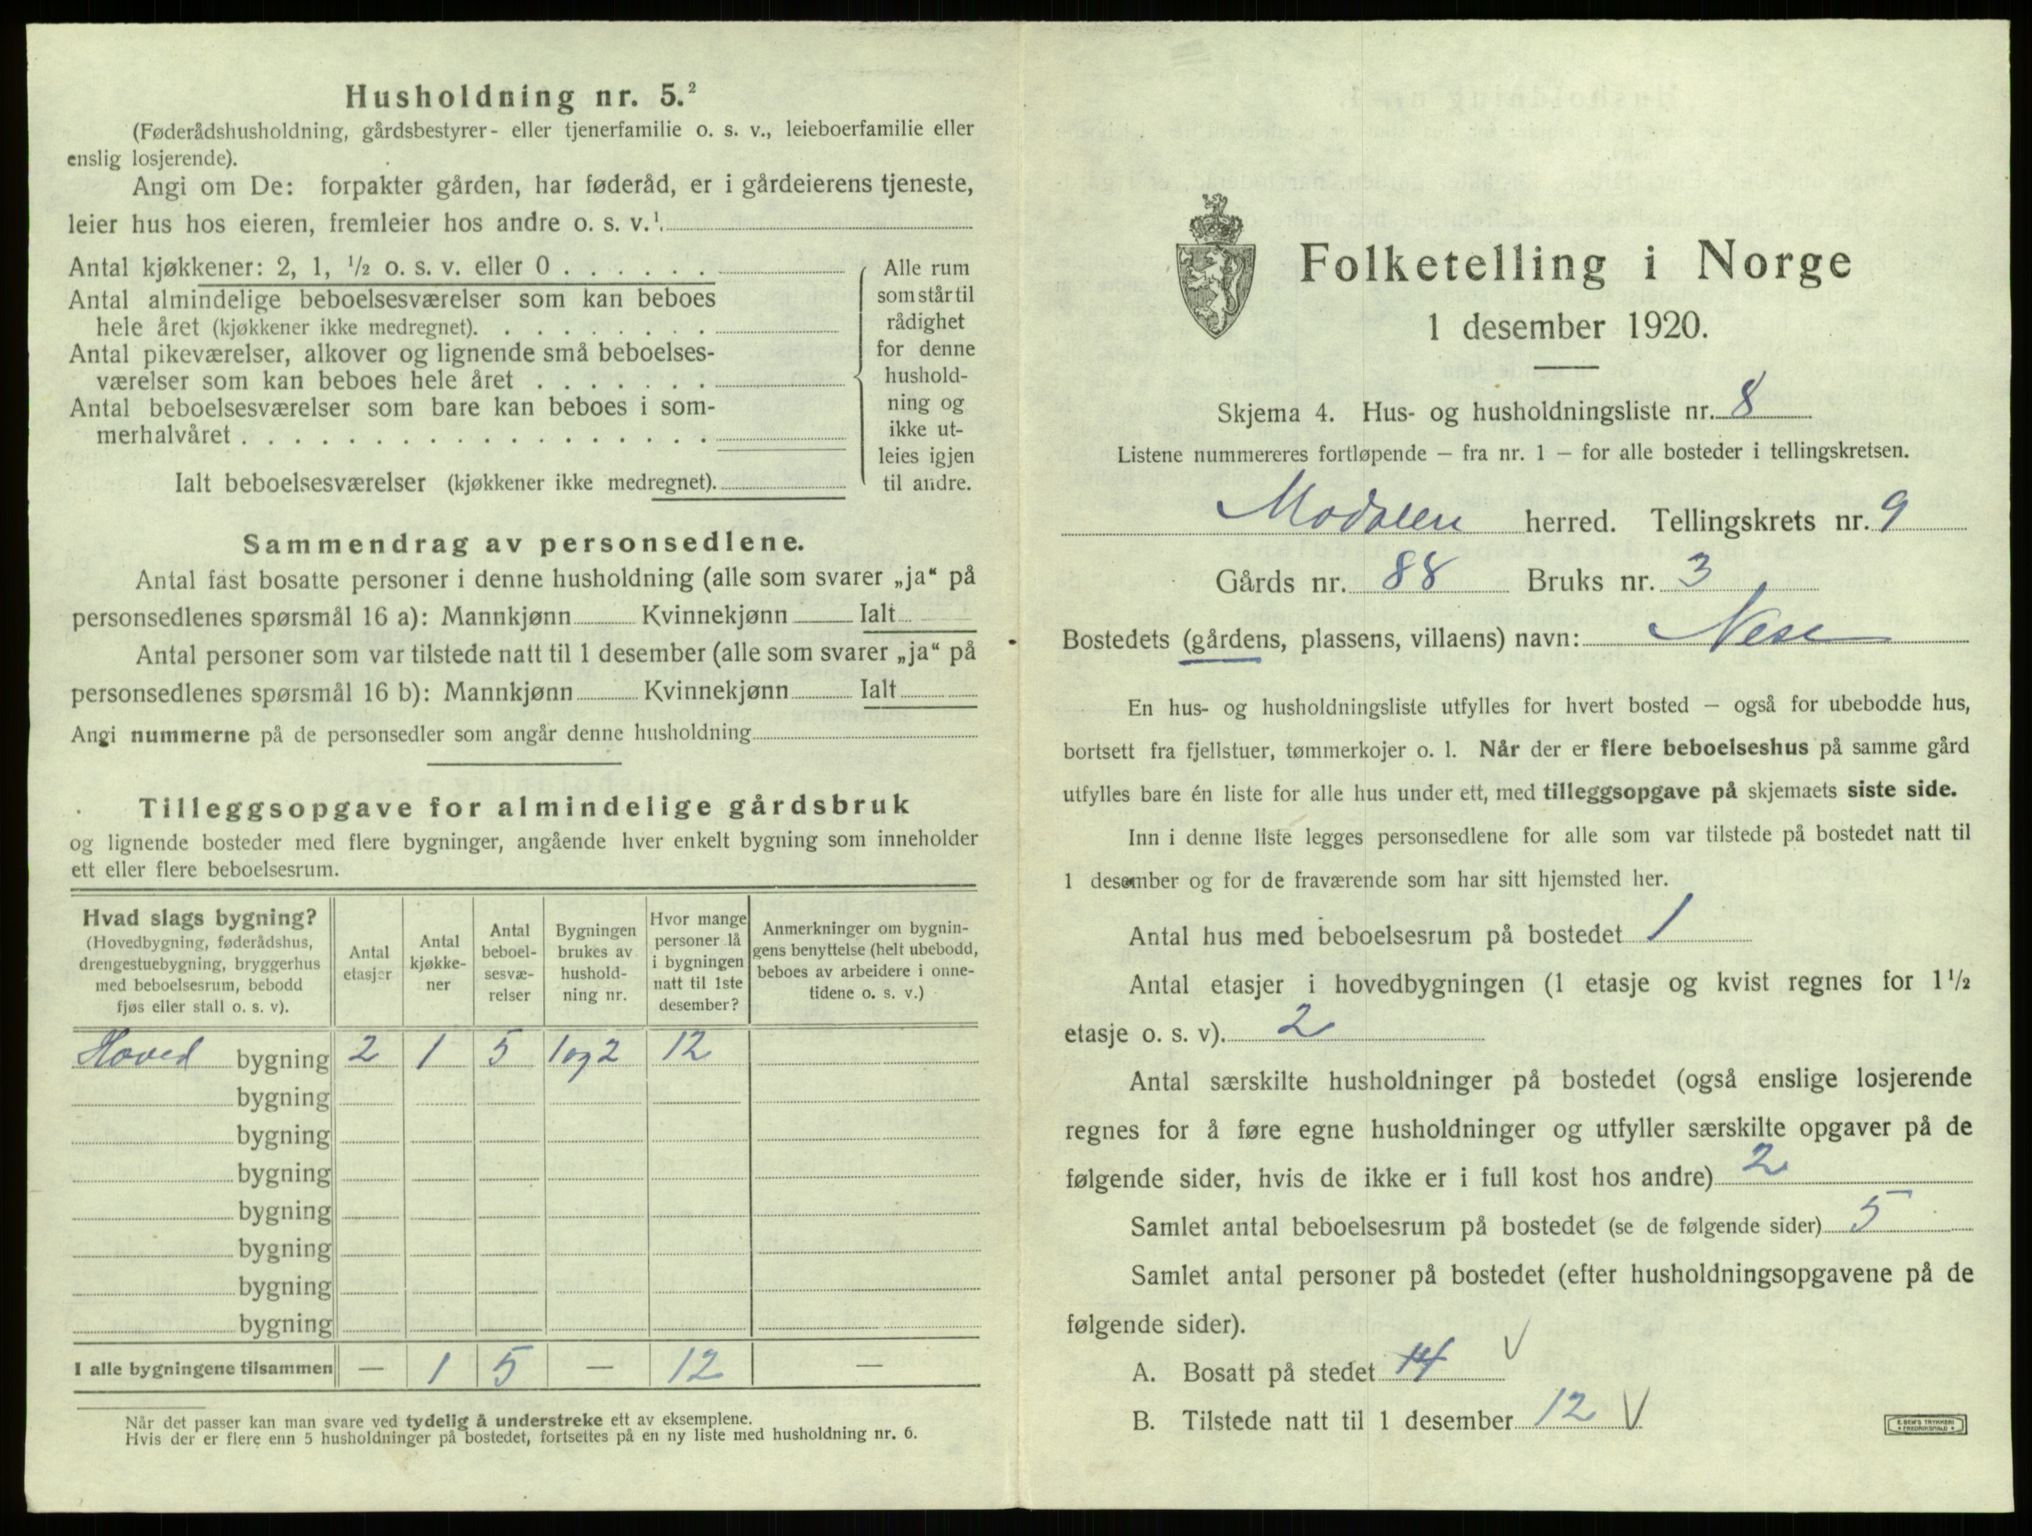 Husholdning nr. 5.²
(Føderådshusholdning, gårdsbestyrer- eller tjenerfamilie o. s. v., leieboerfamilie eller
enslig losjerende).
Angi om De: forpakter gården, har føderåd, er i gårdeierens tjeneste,
leier hus hos eieren, fremleier hos andre o. s. v.¹.
Antal kjøkkener: 2, 1, ½ o. s. v. eller 0 . . . . . .
Antal almindelige beboelsesværelser som kan beboes
hele året (kjøkkener ikke medregnet). . . . . . . . .
Antal pikeværelser, alkover og lignende små beboelses-
værelser som kan beboes hele året . . . . . . .
Antal beboelsesværelser som bare kan beboes i som-
merhalvåret . . . . . . . . . . . . . . . . . .
Ialt beboelsesværelser (kjøkkener ikke medregnet).
Alle rum
som står til
rådighet
for denne
hushold-
ning og
ikke ut-
leies igjen
til andre.
Sammendrag av personsedlene.
Antal fast bosatte personer i denne husholdning (alle som svarer „ja“ på
personsedlenes spørsmål 16 a): Mannkjønn Kvinnekjønn Ialt
Antal personer som var tilstede natt til 1 desember (alle som svarer „ja“ på
personsedlenes spørsmål 16 b): Mannkjønn Kvinnekjønn Ialt
Angi nummerne på de personsedler som angår denne husholdning
Tilleggsopgave for almindelige gårdsbruk
og lignende bosteder med flere bygninger, angående hver enkelt bygning som inneholder
ett eller flere beboelsesrum.
Hvad slags bygning?
(Hovedbygning, føderådshus,
drengestuebygning, bryggerhus
med beboelsesrum, bebodd
fjøs eller stall o. s. v).
Antal
etasjer
Antal
kjøkke-
ner
Antal
beboel-
sesvæ-
relser
Bygningen
brukes av
hushold-
ning nr.
Hvor mange
personer lå
i bygningen
natt til 1ste
desember?
Anmerkninger om bygnin-
gens benyttelse (helt ubebodd,
beboes av arbeidere i onne-
tidene o. s. v.)
Hoved bygning 2 1 5 1 og 2 12
bygning
bygning
bygning
bygning
bygning
bygning
bygning
I alle bygningene tilsammen — 1 5 — 12 —
Når det passer kan man svare ved tydelig å understreke ett av eksemplene.
Hvis der er flere enn 5 husholdninger på bostedet, fortsettes på en ny liste med husholdning nr. 6.
Folketelling i Norge
1 desember 1920.
Skjema 4. Hus- og husholdningsliste nr. 8
Listene nummereres fortløpende — fra nr. 1 — for alle bosteder i tellingskretsen.
Modalen herred. Tellingskrets nr. 9
Gårds nr. 88 Bruks nr. 3
Bostedets (gårdens, plassens, villaens) navn: Nese
En hus- og husholdningsliste utfylles for hvert bosted — også for ubebodde hus,
bortsett fra fjellstuer, tømmerkojer o. l. Når der er flere beboelseshus på samme gård
utfylles bare én liste for alle hus under ett, med tilleggsopgave på skjemaets siste side.
Inn i denne liste legges personsedlene for alle som var tilstede på bostedet natt til
1 desember og for de fraværende som har sitt hjemsted her.
Antal hus med beboelsesrum på bostedet 1
Antal etasjer i hovedbygningen (1 etasje og kvist regnes for 1½
etasje o. s. v). 2
Antal særskilte husholdninger på bostedet (også enslige losjerende
regnes for å føre egne husholdninger og utfyller særskilte opgaver på de
følgende sider, hvis de ikke er i full kost hos andre) 2
Samlet antal beboelsesrum på bostedet (se de følgende sider) 5
Samlet antal personer på bostedet (efter husholdningsopgavene på de
følgende sider).
A. Bosatt på stedet 14 V
B. Tilstede natt til 1 desember 12 V
E. SEM'S TRYKKERI
FREDRIKSHALD